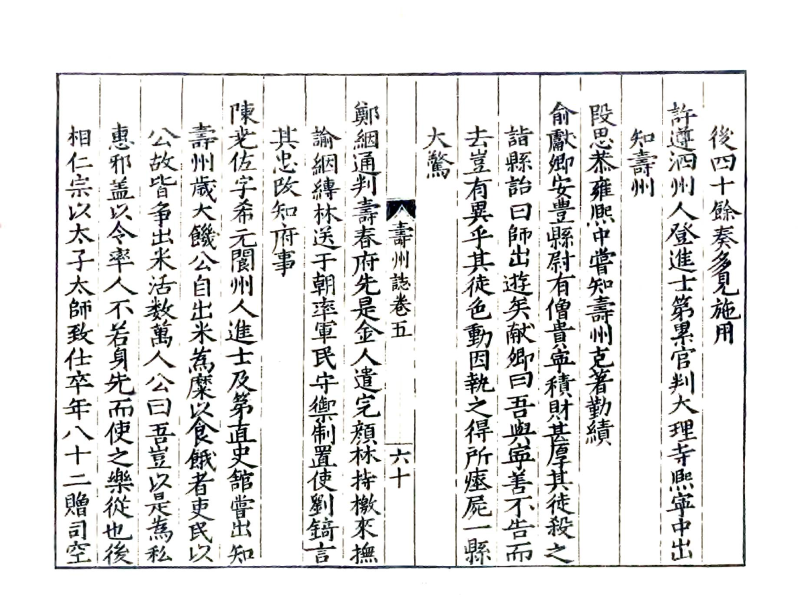 後四十餘奏多見施用
許遵泗州人登進士第累官判大理寺熙寧中出
知壽州
段思恭雍熙中嘗知壽州克著勤績
俞獻卿安豊縣尉有僧貴寧積財甚厚其徒殺之
詣縣詒曰師出遊矣献卿曰吾與寧善不告而
去豈有異乎其徒色動因執之得所瘞屍一縣
大驚
壽州誌卷五
六十
鄭絪通判壽春府先是金人遣完顔林持檄來撫
諭絪縳林送于朝率軍民守禦制置使劉錡言
其忠改知府事
陳尭佐字希元閬州人進士及第直史舘嘗出知
壽州歲大饑公自出米為糜以食餓者吏民以
公故皆争出米活数萬人公曰吾豈以是為私
惠邪盖以令率人不若身先而使之樂從也後
相仁宗以太子太師致仕卒年八十二贈司空